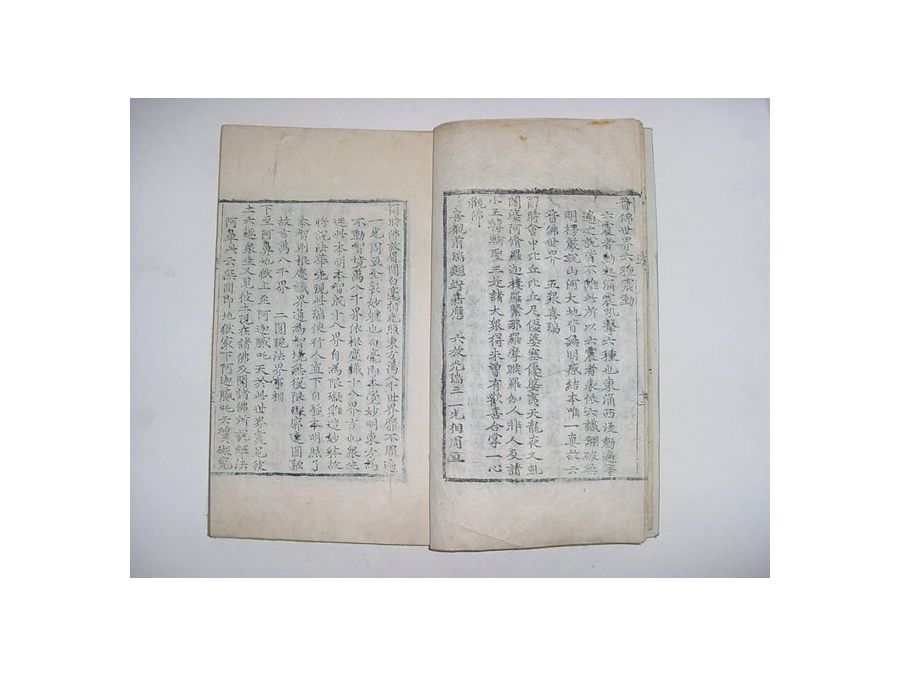 普佛世界六種震動
六震者動起涌震吼擊六種也東涌西沒動遍等
遍之說常不離此所以六震者表依六識飜破無
明楞嚴說山河大地皆無明感結本唯一真故云
普佛世界 五衆喜瑞
爾時會中比丘比丘尼優婆塞優婆夷天龍夜叉乾
闥婆阿脩羅迦樓羅緊那羅摩睺羅伽人非人及諸
小王轉輪聖王是諸大衆得未曾有歡喜合掌一心
觀佛
喜觀前瑞 嘉應 六放光瑞三 一光相周亘
爾時佛放眉間白毫相光照東方萬八千世界靡不周遍
一光周亘 妙體也白毫 本覺妙明東方為
不動智境萬八千界依根塵識十八界言也衆生
迷此本明本智成十八界自為限礙 故
將說法華先現此瑞使行人直下自 本明照了
本智則根塵識界通為智境無復限礙廓達圓融
故言萬八千界 二圓現法界事相
下至阿鼻地獄上至阿迦膩吒天於此世界盡見彼
土六趣衆生又見彼土現在諸佛及聞諸佛所說經法
阿鼻此云無間即地獄 下阿迦膩吒云質礙究